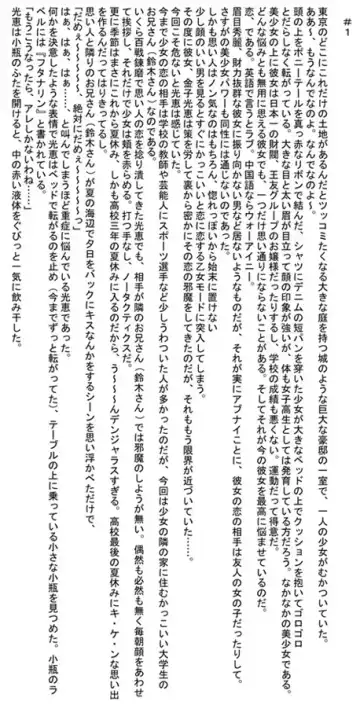 #1
東京のどこにこれだけの土地があるんだとツッコミたくなる大きな庭を持つ城のような巨大な豪邸の一室で、一人の少女がむかついていた。
ああ～、もうなんでなのよ。なんでなのよ～。
頭の上をポニーテールを真っ赤なリボンで結んだ、シャツにデニムの短パンを穿いた少女が大きなベッドの上でクッションを抱いてゴロゴロ
とだらしなく転がっている。大きな目と太い眉が目立って顔の印象が強いが、体も女子高生としては発育している方だろう。なかなかの美少女である。
美少女の上に彼女は日本一の財閥、王友グループのお嬢様だったりするし、学校の成績も悪くない。運動だって得意だ。
どんな悩みとも無用に思える彼女でも、一つだけ思い通りにならないことがある。そしてそれが今の彼女を最高に悩ませているのだ。
恋、である。英語で言うとラブ。中国語ならウォーアイニー。
眉目秀麗、財力抜群な彼女に振り向かない男など居ないようなものだが、それが実にアブナイことに、彼女の恋の相手は友人の女の子だったりして。
さすがの美少女パワーも同性には通じないのであった。
しかも思い人は人気なのはもちろん、惚れっぽいから始末に置けない
少し顔のいい男を見るとすぐにかっこいいと恋に恋する乙女モードに突入してしまう。
その度に彼女、金子光恵は策を労して裏から密かにその恋の邪魔をしてきたのだが、それももう限界が近づいていた……。
今回こそ危ないと光恵は感じていた。
今まで少女の恋の相手は学校の教師や芸能人にスポーツ選手など少しうわついた人が多かったのだが、今回は少女の隣の家に住むかっこいい大学生の
お兄さん(鈴木さん)なのである。
いくら百戦錬磨で思い人の恋を捻り潰してきた光恵でも、相手が隣のお兄さん(鈴木さん)では邪魔のしようが無い。偶然も必然も無く毎朝顔をあわせ
て挨拶して、それだけで少女は頬を赤らめる。打つ手なし、ノータクティクスだ。
更に季節はまさにこれから夏休み、しかも高校三年の夏休みに入るのだから、う～～～んデンジャラスすぎる。高校最後の夏休みにキ・ケ・ンな思い出
を作るんだってはりきってるし。
思い人と隣りのお兄さん(鈴木さん)が夏の海辺で夕日をバックにキスなんかをするシーンを思い浮かべただけで、
「だめぇ～～～～、絶対にだめぇ～～～～っ」
はぁ、はぁ、はぁ……、と叫んでしまうほど重症に悩んでいる光恵であった。
何かを決意したような表情で光恵はベッドで転がるのを止め(今までずっと転がってた)、テーブルの上に乗っている小さな小瓶を見つめた。小瓶のラ
ベルには『フタナリン』と書かれている。
「もうこうなったら、アレしかないわね……」
光恵は小瓶のふたを開けると、中の赤い液体をぐびっと一気に飲み干した。